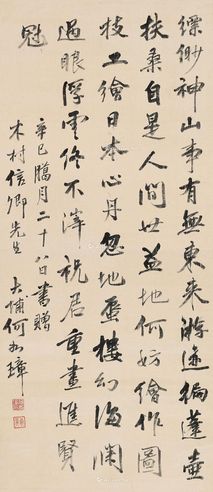 縹緲神山事有無東來游迹徧蓬壺
扶桑自是人間世益地何妨繪作圖
技工繪日本心丹忽地蜃樓幻海瀾
過眼浮雲終不滓祝君重畫進賢
冠
辛巳臘月二十八日書贈
木村信卿先生
大埔何如璋